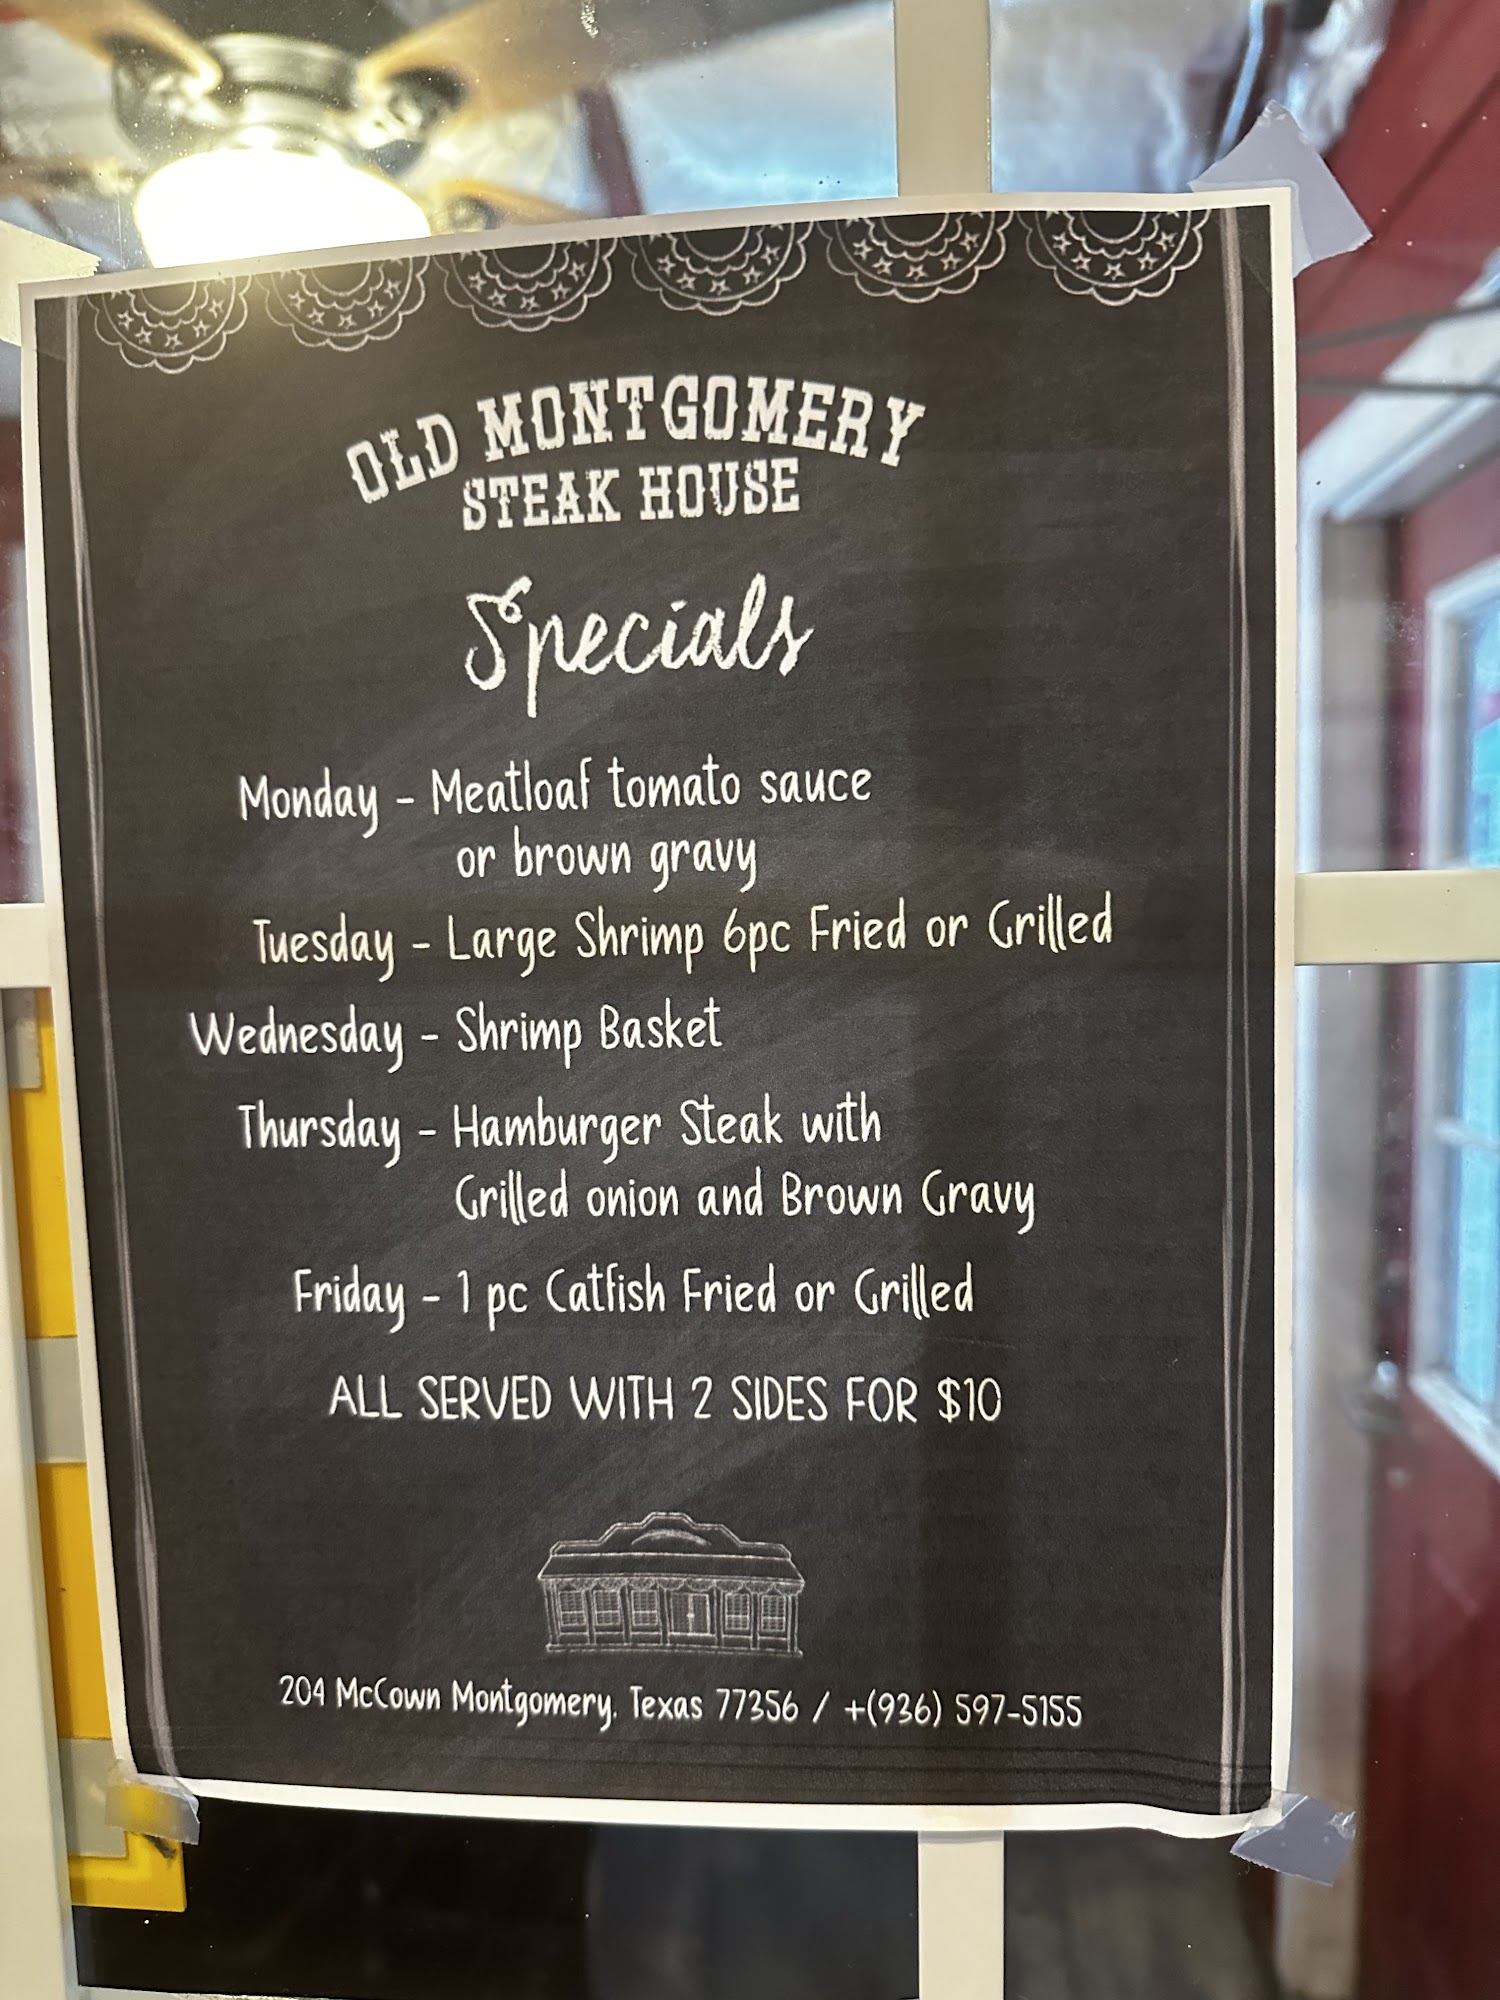 OLD MONTGOMERY
STEAK HOUSE
Specials
Monday - Meatloaf tomato sauce
or brown gravy
Tuesday - Large Shrimp 6pc Fried or Grilled
Wednesday - Shrimp Basket
Thursday - Hamburger Steak with
Grilled onion and Brown Gravy
Friday - 1 pc Catfish Fried or Grilled
ALL SERVED WITH 2 SIDES FOR $10
204 McCown Montgomery, Texas 77356 / +(936) 597-5155